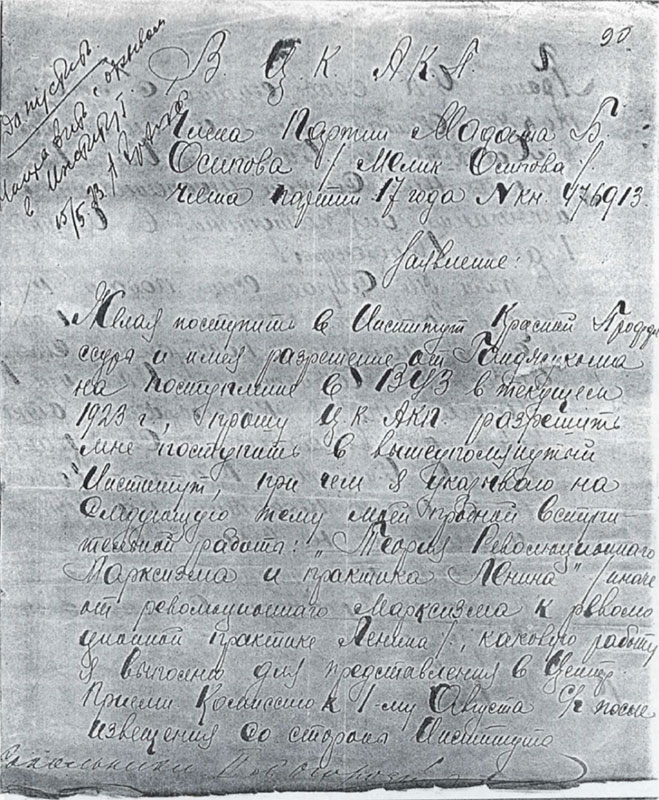 90.
Допустить.
в Институт.
15/5 23
В Ц. К. А.К.П.
Члена Партии Мадата Б.
Осипова /Мелик-Осипова/.
Члена партии 17 года N кн. 476913.
Заявление:
Желая поступить в Институт Красной Профес
ссура и имея разрешение от
на поступление в ВУЗ в текущем
1923 г, прошу Ц.К. АКП. разрешить
мне поступить в вышеупомянутый
Институт, при чем я указываю на
следующую тему моей пробной вступи
тельной работы: „Теория Революционного
Марксизма и практика Ленина" /иначе
от революционного Марксизма к револю
ционной практике Ленина/, каковую работу
я выполню для представления в Центр.
Приемн Комиссию к 1-му Августа с/г после
извещения со стороны Института